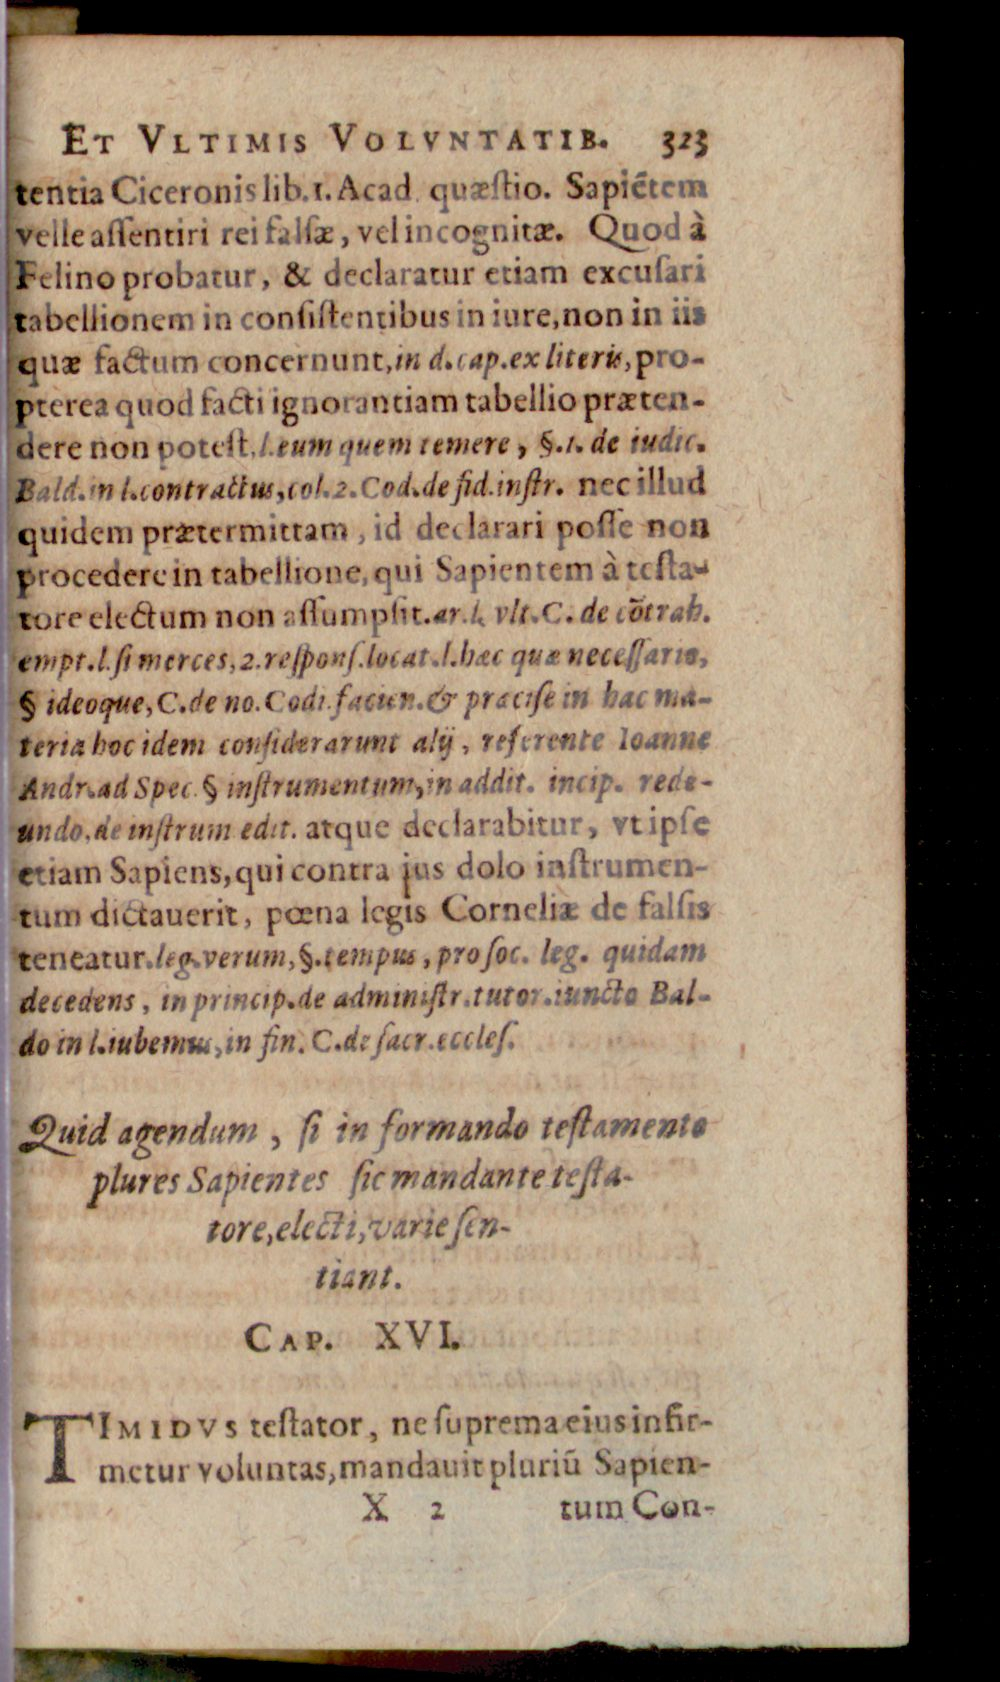 ET VLTIMIS VOLVNTATIB. 323
tentia Ciceronis lib.1. Acad. quæſtio. Sapiẽtem
velle aſſentiri rei falſæ, vel incognitæ. Quod à
Felino probatur, & declaratur etiam excuſari
tabellionem in conſiſtentibus in iure, non in iis
quæ factum concernunt, in d. cap. ex literis, pro-
pterea quod facti ignorantiam tabellio præten-
dere non poteſt, l. eum quem temere, §.1. de iudic.
Bald. in l. contractus, col. 2. Cod. de fid. inſtr. nec illud
quidem prætermittam, id declarari poſſe non
procedere in tabellione, qui Sapientem à teſta-
tore electum non aſſumpſit. ar. l. vlt. C. de cõtrah.
empt. l. ſi merces, 2. reſponſ. locat. l. hæc quæ neceſſario,
§ ideoque, C. de no. Codi. facien. & præciſe in hac ma-
teria hoc idem conſiderarunt alij, referente Ioanne
Andr. ad Spec. § inſtrumentum, in addit. incip. rede-
undo, de inſtrum. edit. atque declarabitur, vt ipſe
etiam Sapiens, qui contra jus dolo inſtrumen-
tum dictauerit, pœna legis Corneliæ de falſis
teneatur. leg. verum, §. tempus, pro ſoc. leg. quidam
decedens, in princip. de adminiſtr. tutor. iuncto Bal-
do in l. iubemus, in fin. C. de ſacr. eccleſ.
Quid agendum, ſi in formando teſtamento
plures Sapientes ſic mandante teſta-
tore, electi, varie ſen-
tiant.
CAP. XVI.
TIMIDVS teſtator, ne ſuprema eius infir-
metur voluntas, mandauit pluriũ Sapien-
X 2 tum Con-